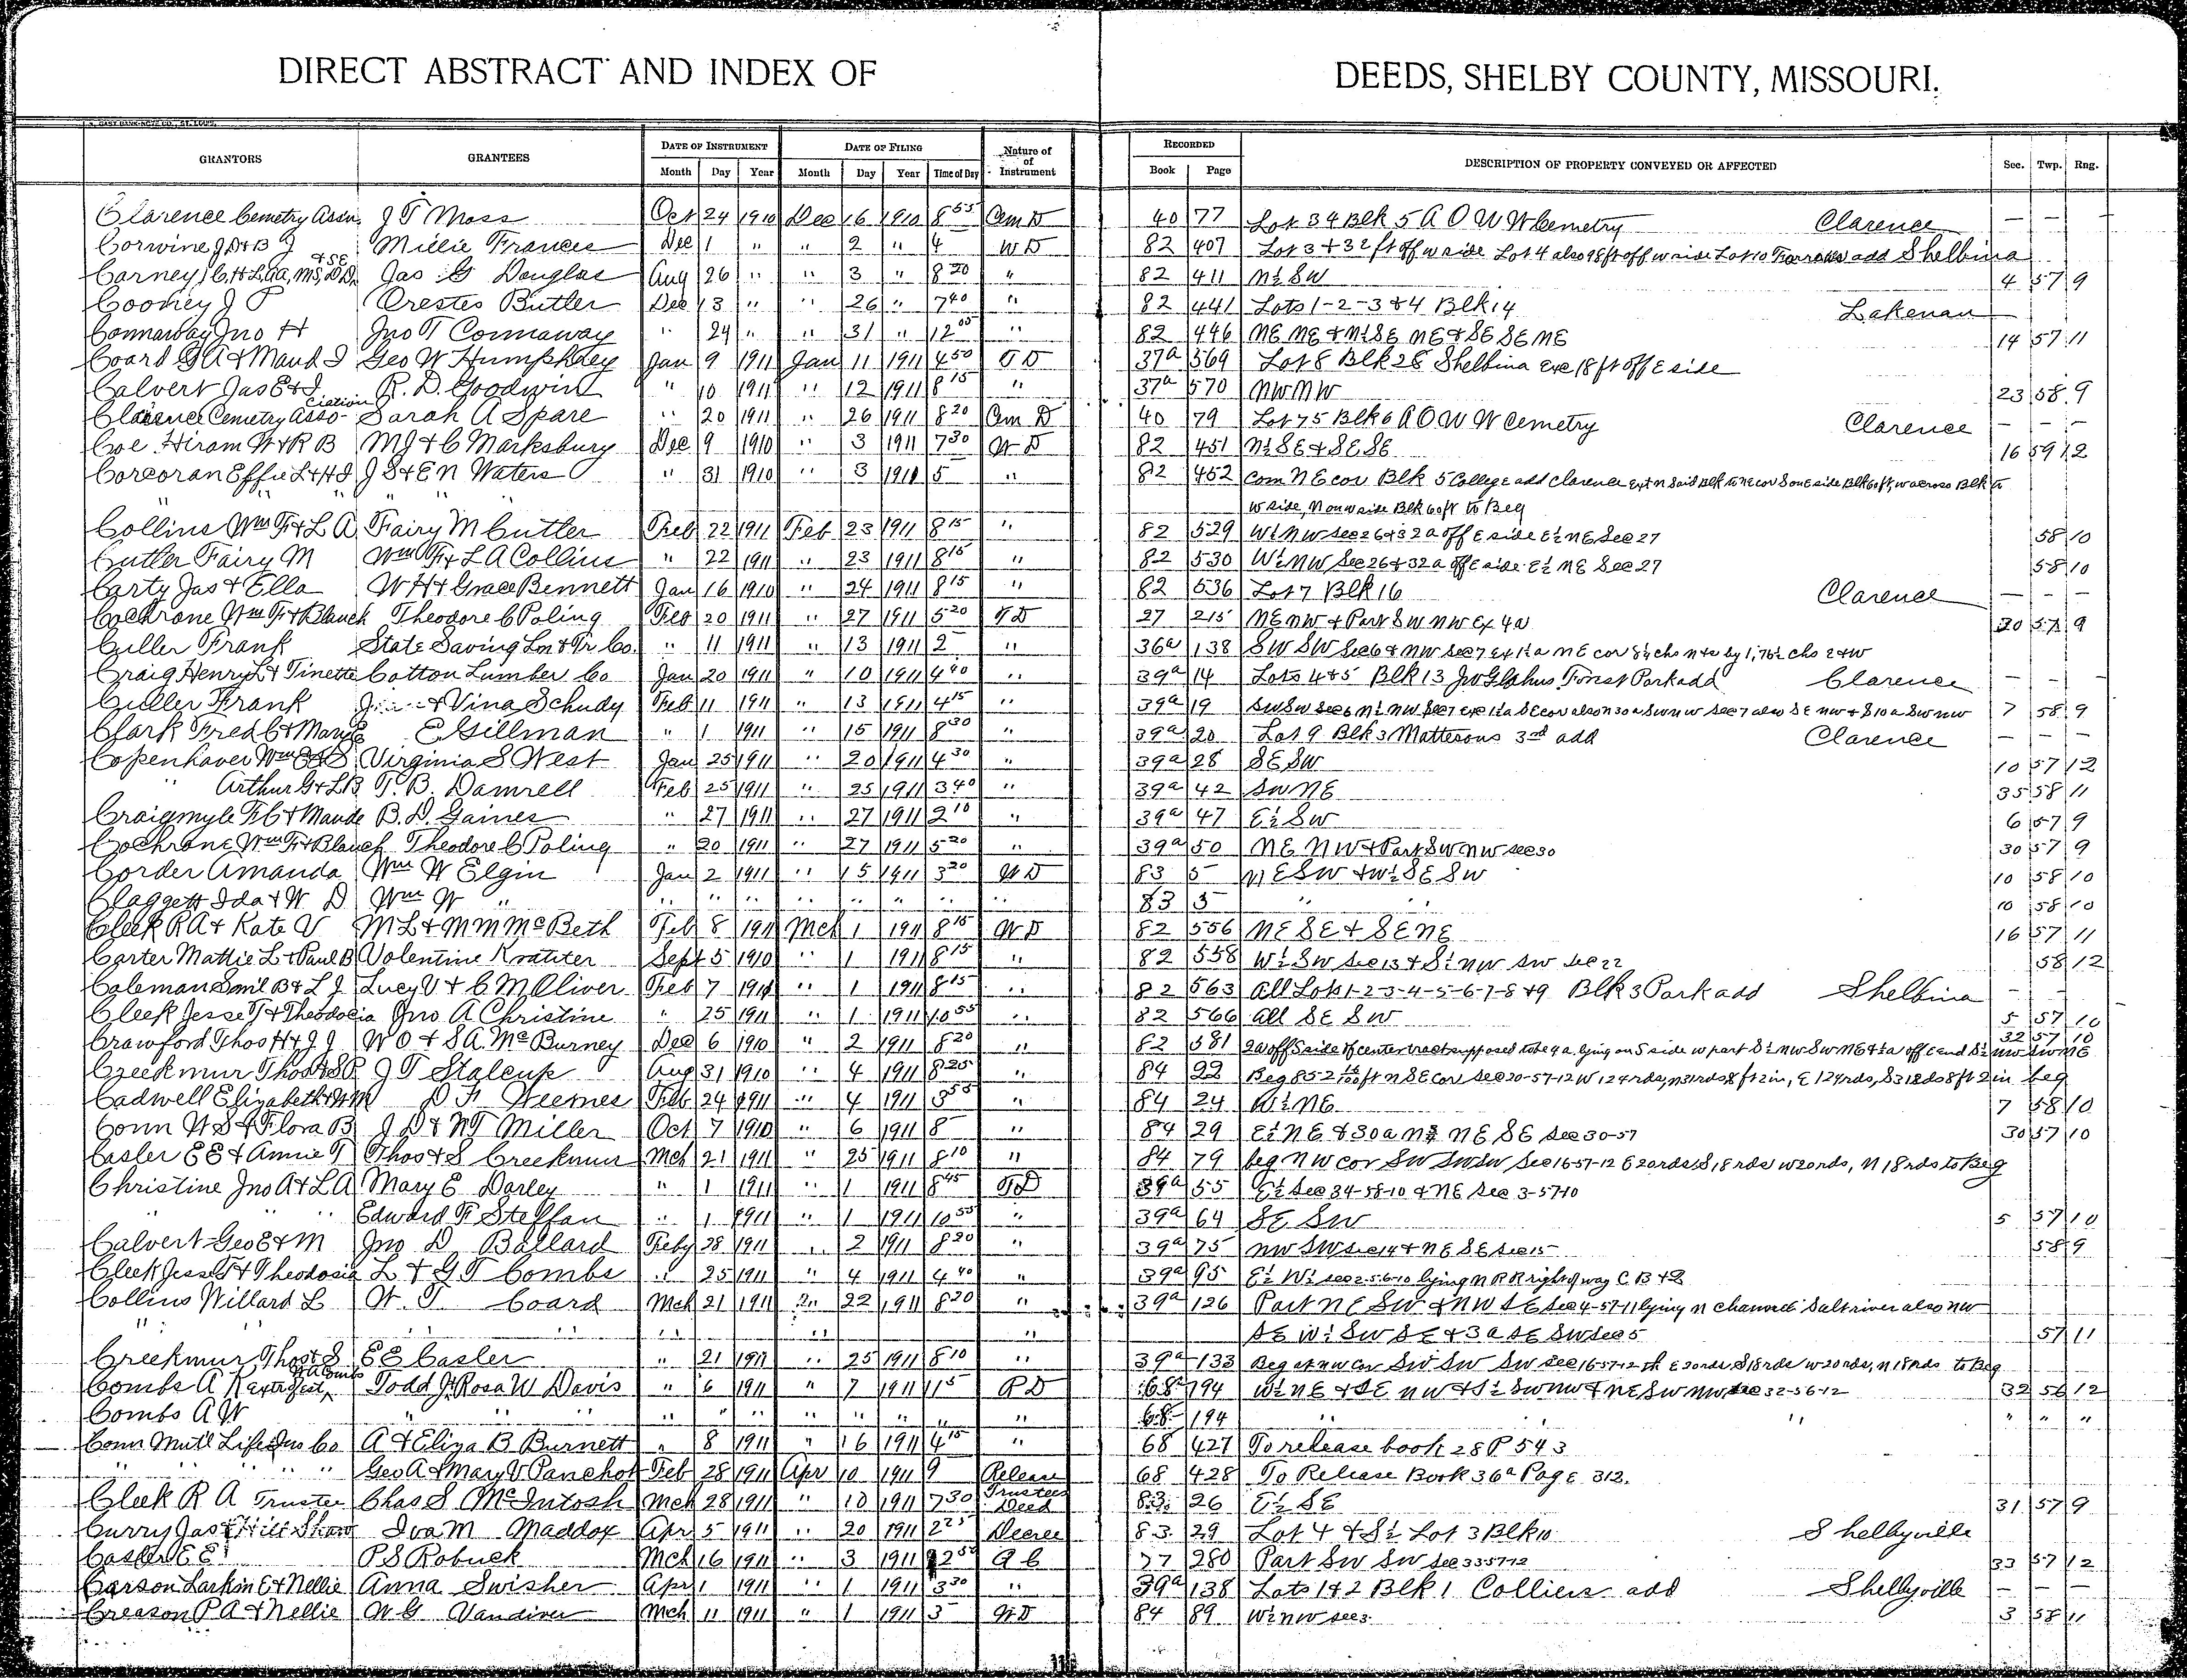 DIRECT ABSTRACT AND INDEX OF DEEDS, SHELBY COUNTY, MISSOURI.
GRANTORS GRANTEES DATE OF INSTRUMENT DATE OF FILING Nature of Instrument RECORDED DESCRIPTION OF PROPERTY CONVEYED OR AFFECTED Sec. Twp. Rng.
Month Day Year Month Day Year Time of Day Book Page
Clarence Cemetry Assn. J T Moss Oct 24 1910 Dec 16 1910 8 55 Cem D 40 77 Lot 34 Blk 5 A O U W Cemetry Clarence — — —
Corwine J D & B J Millie Frances Dec 1 " " 2 " 4 W D 82 407 Lot 3 & 32 ft off w side Lot 4 also 98 ft off w side Lot 10 add Shelbina
Carney Jas G Douglas Aug 26 " " 3 " 8 20 " 82 411 N½ SW 4 57 9
Cooney J P Orestes Butler Dec 13 " " 26 " 7 40 " 82 441 Lots 1-2-3 & 4 Blk 14 Lakenan
Connaway Jno H Jno T Connaway " 24 " " 31 " 12 05 " 82 446 NE NE & N½ SE NE & SE SE NE 14 57 11
Coard G A & Maud I Geo W Humphrey Jan 9 1911 Jan 11 1911 4 50 T D 37a 569 Lot 8 Blk 28 Shelbina exc 18 ft off E side
Calvert Jas E & J R. D. Goodwin " 10 1911 " 12 1911 8 15 " 37a 570 NW NW 23 58 9
Clarence Cemetry Asso-ciation Sarah A Spare " 20 1911 " 26 1911 8 20 Cem D 40 79 Lot 75 Blk 6 A O U W Cemetry Clarence — — —
Coe Hiram W & R B M J & C Marksbury Dec 9 1910 " 3 1911 7 30 W D 82 451 N½ SE & SE SE 16 59 12
Corcoran Effie L & H J J S & E N Waters " 31 1910 " 3 1911 5 " 82 452 Com NE cor Blk 5 College add Clarence
" " " " w side, N on w side Blk 60 ft to Beg
Collins Wm F & L A Fairy M Cutler Feb 22 1911 Feb 23 1911 8 15 " 82 529 W½ NW Sec 26 & 32 a off E side E½ NE Sec 27 58 10
Cutler Fairy M Wm F & L A Collins " 22 1911 " 23 1911 8 15 " 82 530 W½ NW Sec 26 & 32 a off E side E½ NE Sec 27 58 10
Carty Jas & Ella W H & Grace Bennett Jan 16 1910 " 24 1911 8 15 " 82 536 Lot 7 Blk 16 Clarence — — —
Cochrone Wm F & Blanch Theodore C Poling Feb 20 1911 " 27 1911 5 20 T D 27 215 NE NW & Part SW NW Ex 4a 30 57 9
Culler Frank State Saving Ln & Tr Co. " 11 1911 " 13 1911 2 " 36a 138 SW SW Sec 6 & NW Sec 7
Craig Henry L & Tinette Cotton Lumber Co Jan 20 1911 " 10 1911 4 40 " 39a 14 Lots 4 & 5 Blk 13 Forest Park add Clarence — — —
Culler Frank & Vina Schudy Feb 11 1911 " 13 1911 4 15 " 39a 19 SW SW Sec 6 N½ NW Sec 7 7 58 9
Clark Fred C & Mary E E Gillman " 1 1911 " 15 1911 8 30 " 39a 20 Lot 9 Blk 3 Mattesons 3rd add Clarence — — —
Copenhaver Wm Virginia S West Jan 25 1911 " 20 1911 4 30 " 39a 28 SE SW 10 57 12
" Arthur G & L B T. B. Damrell Feb 25 1911 " 25 1911 3 40 " 39a 42 SW NE 35 58 11
Craigmyle F C & Maude B. D. Gaines " 27 1911 " 27 1911 2 10 " 39a 47 E½ SW 6 57 9
Cochrone Wm F & Blanch Theodore C Poling " 20 1911 " 27 1911 5 20 " 39a 50 NE NW & Part SW NW Sec 30 30 57 9
Corder Amanda Wm W Elgin Jan 2 1911 " 15 1911 3 20 W D 83 5 NE SW & W½ SE SW 10 58 10
Claggett Ida & W D Wm W " " " " " " " " " 83 5 " " 10 58 10
Cleek R A & Kate V M L & M M McBeth Feb 8 1911 Mch 1 1911 8 15 W D 82 556 NE SE & SE NE 16 57 11
Carter Mattie L & Paul B Volentine Kratzer Sept 5 1910 " 1 1911 8 15 82 558 W½ SW Sec 13 & S½ NW SW Sec 22 58 12
Coleman Saml B & L J Lucy V & C M Oliver Feb 7 1911 " 1 1911 8 15 " 82 563 All Lots 1-2-3-4-5-6-7-8 & 9 Blk 3 Park add Shelbina — —
Cleek Jesse T & Theodocia Jno A Christine " 25 1911 " 1 1911 10 55 " 82 566 All SE SW 5 57 10
Crawford Thos H & J J W O & S A McBurney Dec 6 1910 " 2 1911 8 20 " 82 581 2a off S side of center tract supposed to be 4 a. lying on S side 32 57 10
Creekmur Thos & S P J T Stalcup Aug 31 1910 " 4 1911 8 25 " 84 22 Beg 85-2 ft N SE cor Sec 20-57-12 W 124 rds, N 31 rds 8 ft 2 in, E 124 rds, S 31 rds 8 ft 2 in beg
Cadwell Elizabeth & W M D F Weemes Feb 24 1911 " 4 1911 3 55 " 84 24 W½ NE 7 58 10
Conn W S & Flora B J D & N T Miller Oct 7 1910 " 6 1911 8 " 84 29 E½ NE & 30 a N½ NE SE Sec 30-57 30 57 10
Casler E E & Annie T Thos & S Creekmur Mch 21 1911 " 25 1911 8 10 " 84 79 beg NW cor SW SW SW Sec 16-57-12 E 20 rds S 18 rds W 20 rds, N 18 rds to Beg
Christine Jno A & L A Mary E Darley " 1 1911 " 1 1911 8 45 T D 39a 55 E½ Sec 34-58-10 & NE Sec 3-57-10
" " Edward F Steffan " 1 1911 " 1 1911 10 55 " 39a 64 SE SW 5 57 10
Calvert Geo E & M Jno D Ballard Feby 28 1911 " 2 1911 8 20 " 39a 75 NW SW Sec 14 & NE SE Sec 15 58 9
Cleek Jesse T & Theodosia L & G T Combs " 25 1911 " 4 1911 4 40 " 39a 95 E½ W½ Sec 2-56-10 lying N R R right of way C B & Q
Collins Willard L W. T. Coard Mch 21 1911 " 22 1911 8 20 " 39a 126 Part NE SW & NW SE Sec 4-57-11 lying N channel Salt river also NW
" " " " " " " SE W½ SW SE & 3 a SE SW Sec 5 57 11
Creekmur Thos & S E E Casler " 21 1911 " 25 1911 8 10 " 39a 133 Beg at NW cor SW SW SW Sec 16-57-12 th E 20 rds S 18 rds W 20 rds, N 18 rds to Beg
Combs A R Todd J & Rosa W Davis " 6 1911 " 7 1911 11 5 P D 68 194 W½ NE & SE NW & S½ SW NW & NE SW NW Sec 32-56-12 32 56 12
Combs A W " " " " " " " " " " " 68 194 " " " " " "
Conn Mutl Life Ins Co A & Eliza B Burnett " 8 1911 " 16 1911 4 15 " 68 427 To release book 28 P 543
" " " " Geo A & May V Panchot Feb 28 1911 Apr 10 1911 9 Release 68 428 To Release Book 36a Page 312.
Cleek R A Trustee Chas S McIntosh Mch 28 1911 " 10 1911 7 30 Trustees Deed 83 26 E½ SE 31 57 9
Curry Jas Iva M Maddox Apr 5 1911 " 20 1911 2 25 Decree 83 29 Lot 4 & S½ Lot 3 Blk 10 Shelbyville
Casler E E P S Robuck Mch 16 1911 " 3 1911 2 50 Q C 77 280 Part SW SW Sec 33 57 12 33 57 12
Carson Larkin E & Nellie Anna Swisher Apr 1 1911 " 1 1911 3 30 " 39a 138 Lots 1 & 2 Blk 1 Colliers add Shelbyville — — —
Creason P A & Nellie W G Vandiver Mch 11 1911 " 1 1911 3 W D 84 89 W½ NW Sec 3 3 58 11